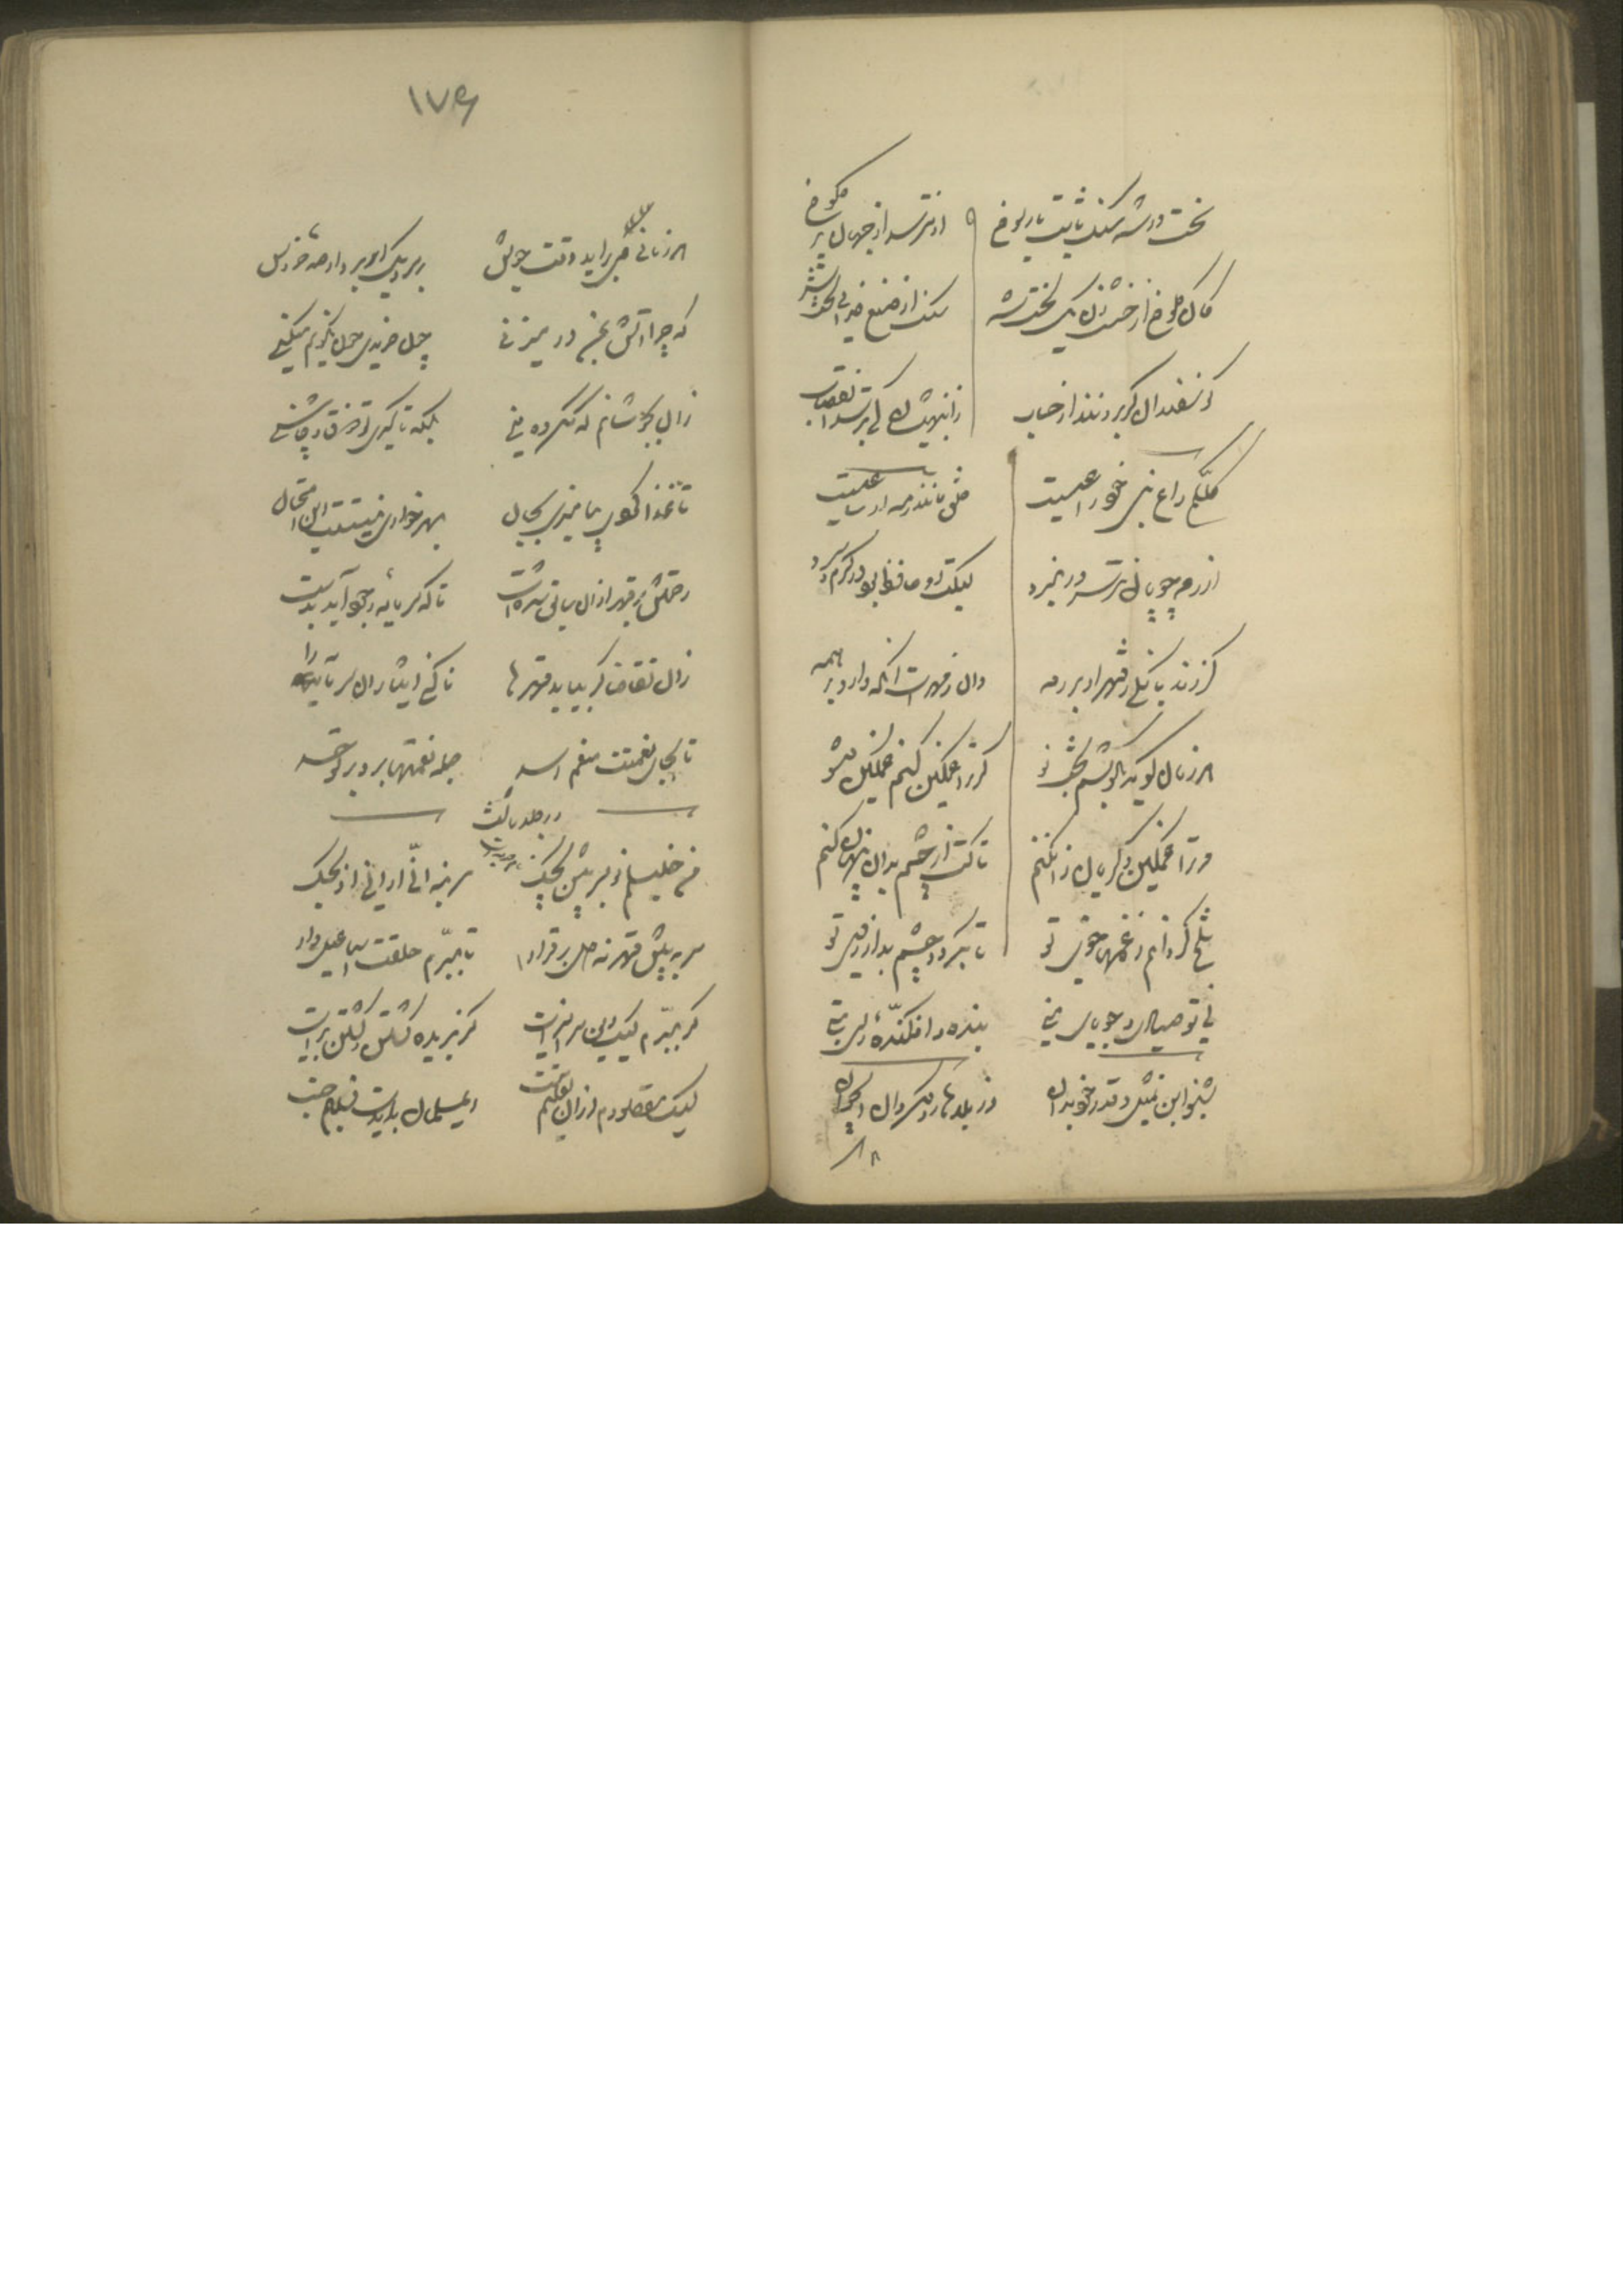 سخت رو شد سنگ ثابت با رسوخ او نترسد از جهان پر کلوخ
کان کلوخ از خشت زن یک لخت شد سنگ از صنع خدایی سخت شد
گوسفندان گر برونند از حساب زانبهیشان کی بترسد آن قصاب
کلّکم راع نبی چون راعیست خلق مانند رمه او ساعیست
از رمه چوپان نترسد در نبرد لیک او حافظ بود در گرم و سرد
گر زند بانگی ز قهر او بر رمه دان ز مهرست آنکه دارد بر همه
هر زمان گوید بگوشم بخت نو گر ترا غمگین کنم غمگین مشو
ور ترا غمگین و گریان زان کنم تا کت از چشم بدان پنهان کنم
تلخ گردانم ز غمها خوی تو تا بگردد چشم بد از روی تو
نی تو صیادی و جویای منی بنده و افکندهٔ رای منی
بشنو این تمثیل و قدر خود بدان از بلاها رو مگردان ای جوان
۱۷۶
هر زمانی می برآید وقت جوش بر سر دیک و برآرد صد خروش
که چرا آتش بمن در میزنی چون خریدی چون نگونم میکنی
زان بجوشانم که مکروه منی بلکه تا گیری تو ذوق و چاشنی
تا غذا گردی بیامیزی بجان بهر خواری نیستت این امتحان
رحمتش بر قهر از آن سابق شدست تا که سرمایه وجود آید بدست
زان تقاضا گر بیاید قهرها تا کنی ایثار آن سرمایه را
تا بجای نعمتت منعم رسد جمله نعمتها برد بر تو حسد
در جلد ثالث
من خلیلم تو پسر پیش بچک سر بنه انّی ارانی اذبحک
سر به پیش قهر نه دل بر قرار تا ببرّم حلقت اسمعیل وار
گر ببرّم لیک این سر آن سرست کز بریده گشتن و کشتن بریست
لیک مقصودم ازل تعلیم تست ای مسلمان بایدت تسلیم جست